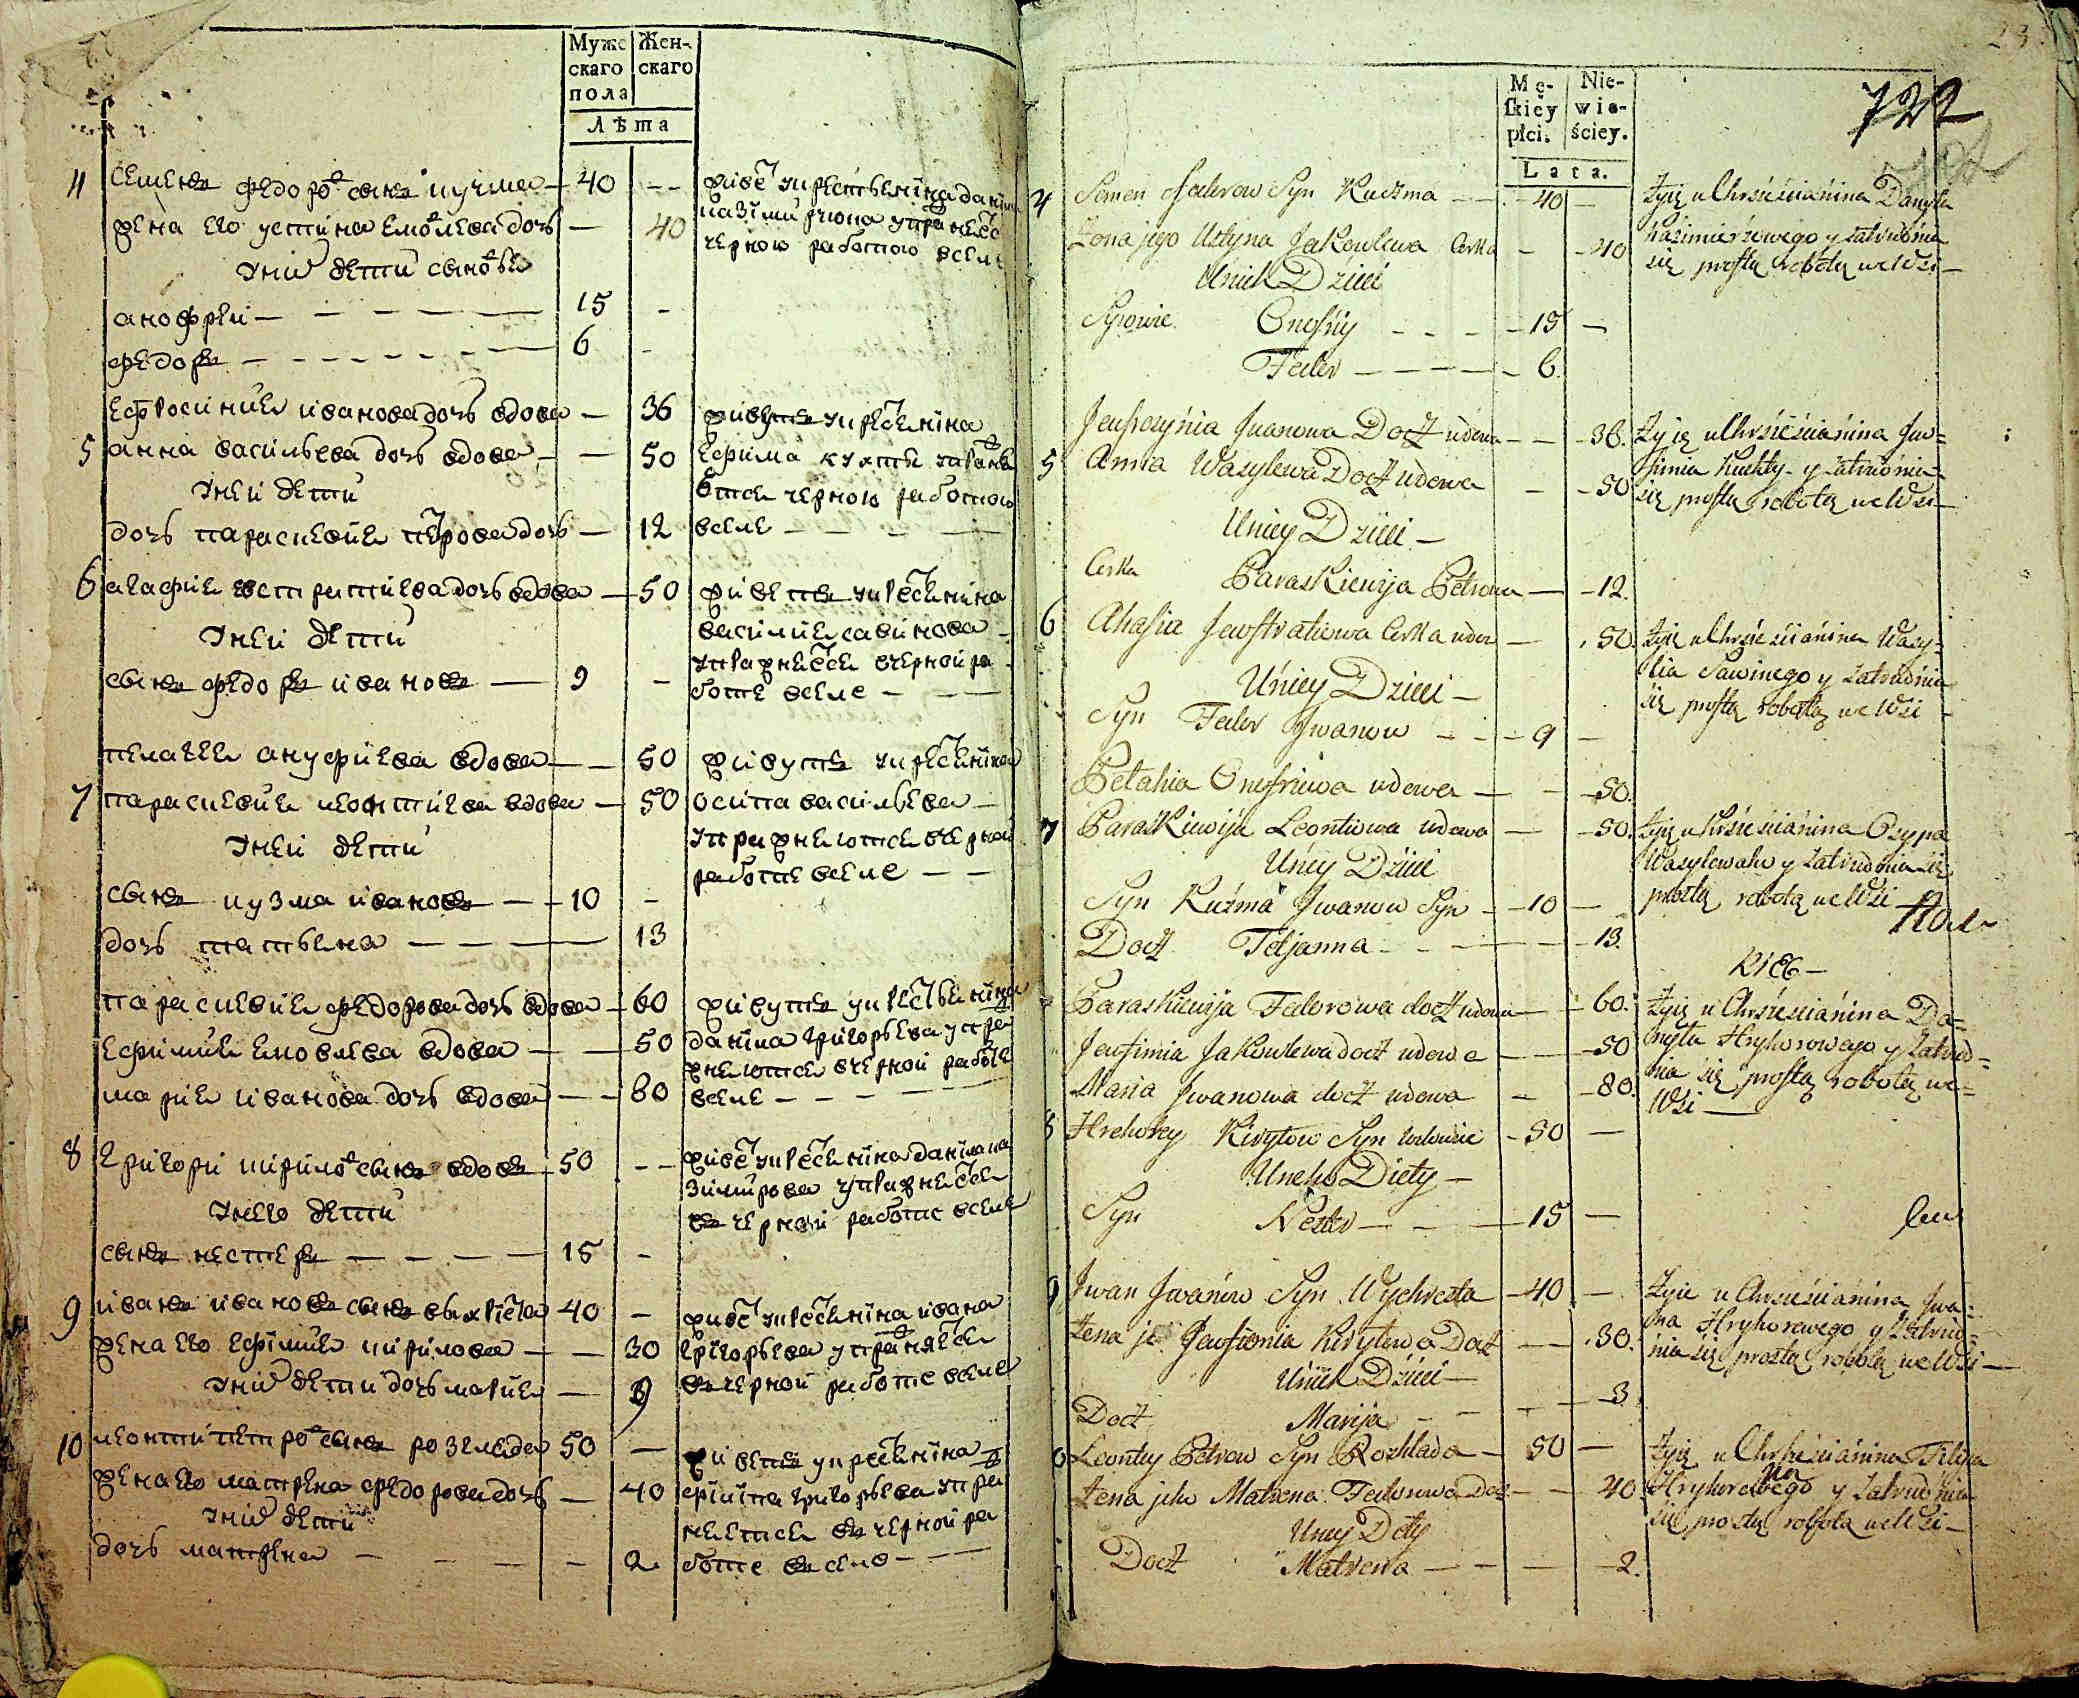 Муже
скаго
пола
Жен-
скаго
Лѣта
4 семенъ федоровъ сынъ кучма — 40 - -
жена его устина яковлева дочь — 40
у них дети сыновья
анофрей — 15 -
федоръ — 6 -
ефросиния иванова дочь вдова — 36
5 анна васильева дочь вдова — 50
у неи дети
дочь параскевия петрова дочь — 12
6 агафия евстратиева дочь вдова — 50
у неи дети
сынъ федоръ ивановъ — 9 -
пелагея ануфриева вдова — 50
7 параскевия леонтиева вдова — 50
у неи дети
сынъ кузма ивановъ — 10 -
дочь татьяна — 13
параскевия федорова дочь вдова — 60
ефимия яковлева вдова — 50
мария иванова дочь вдова — 80
8 григори кирилов сынъ вдовъ 50 - -
у него дети
сынъ нестеръ — 15 -
9 иванъ ивановъ сынъ выхреста 40 -
жена его ефимия кирилова — 30
у них дети дочь мария — 9
10 леонти петров сынъ розклада 50 —
жена его матрена федорова дочь — 40
у них дети
дочь матрена — 2
живет у крестьянина данила
казимирчюка упражняется
черною работою в селе
живутъ у крестянина
ефима кухты упражня
ются черною работою
в селе —
живетъ у крестянина
василия савинова
упражняется в черной ра
боте в селе —
живутъ у крестянина
осипа васильева —
упражняются в черной
работе в селе —
живутъ у крестьянина
данила григорьева упра
жняются в черной работе
в селе —
живет у крестянина данила ка
зимирова упражняется
въ черной работе в селе
живет у крестянина ивана
григорьева упражняется
въ черной работе в селе
живетъ у крестянина
филипа григорьева упра
жняется въ черной ра
боте въ селе —
Mę-
skiey
płci.
Nie-
wie-
ściey.
Lata.
722
4 Simen Federow Syn Kuczma — 40 —
Żona jego Ustyna Jakowlewa Cerka — 40
Unich Dzieci
Synowie Onofriy — 15 —
Fedor — 6.
Jeufrozynia Iwanowa Docz udowa — 36.
5 Anna Wasylewa Docz udowa — 50
Uniey Dzieci —
Cerka Paraskiewija Petrowa — 12.
6 Ahafia Jewstratiewa Cerka udowa — 50.
Uniey Dzieci —
Syn Fedor Iwanow — 9 —
Pelahia Onofriewa udowa — 50.
7 Paraskiewija Leontiowa udowa — 50.
Uniey Dzieci
Syn Kuźma Iwanow Syn — 10 —
Docz Tetjanna — 13.
Paraskiewija Fedorowa docz udowa — 60.
Jeufimia Jakowlewa docz udowa — 50
Maria Iwanowa docz udowa — 80.
8 Hrehorey Kirylow Syn — 50 —
Uneho Diety —
Syn Nester — 15 —
9 Iwan Iwanow Syn Wychresta — 40 —
Żena je Jeufiemia Kirylowa Docz — 30.
Unich Dzieci —
Docz Marija — 3.
0 Leontiy Petrow Syn Rozklada — 50 —
Żena jeho Matrena Fedorowa Docz — 40
Uney Dety
Docz Matrena — 2.
Żyie u Chrześcianina Danyła
Kazimierzowego y zatrudnia
się prostą robotą we Wsi —
Żyią u Chrześcianina Jew-
fimia Kuchty y zatrudnia
się prostą robotą we Wsi —
Żyie u Chrześcianina Wasy-
lia Sawinego y zatrudnia
się prostą robotą we Wsi —
Żyią u Chrześcianina Osypa
Wasylewaho y zatrudnia się
prostą robotą we Wsi —
Żyią u Chrześcianina Da-
nyła Hryhorowego y zatrud-
nia się prostą robotą we-
Wsi —
Żyie u Chrześcianina Iwa-
na Hryhorowego y zatrud-
nia się prostą robotą we Wsi —
Żyie u Chrześcianina Filipa
Hryhorowego y zatrudnia
się prostą robotą we Wsi —